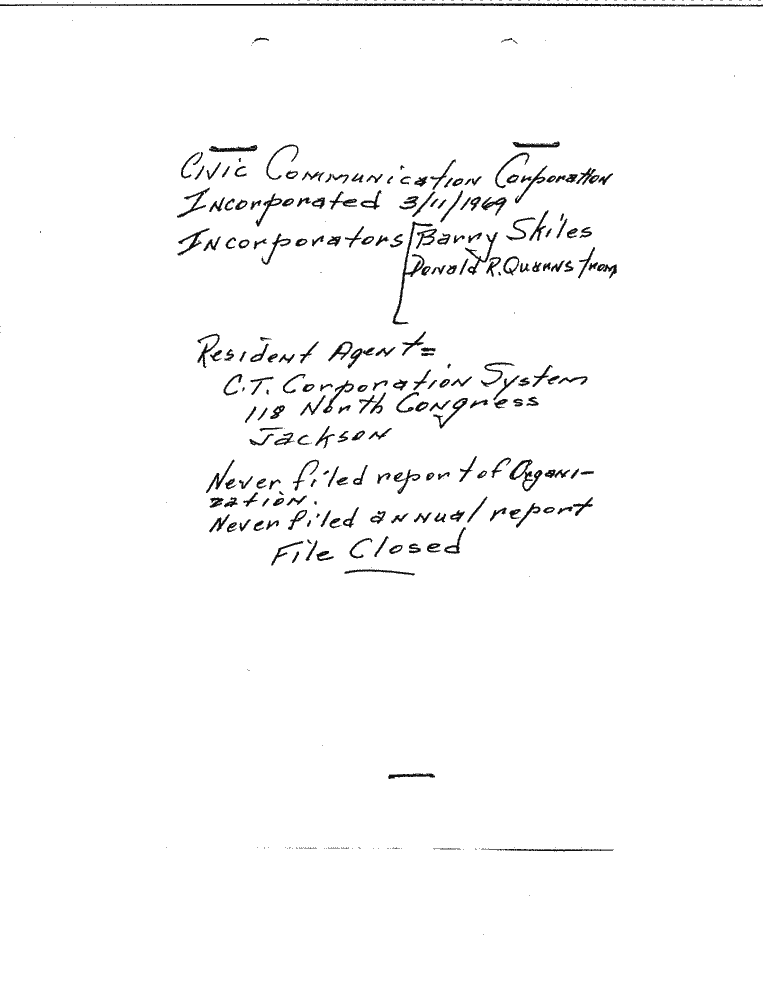 Civic Communication Corporation
Incorporated 3/11/1969
Incorporators Barry Skiles
Donald R.
Resident Agent =
C.T. Corporation System
118 North Congress
Jackson
Never filed report of Organi-
zation.
Never filed annual report
File Closed